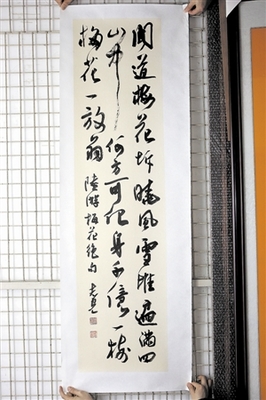 聞道梅花坼曉風雪堆遍滿四
山中何方可化身千億一樹
梅花一放翁
陸游梅花絕句